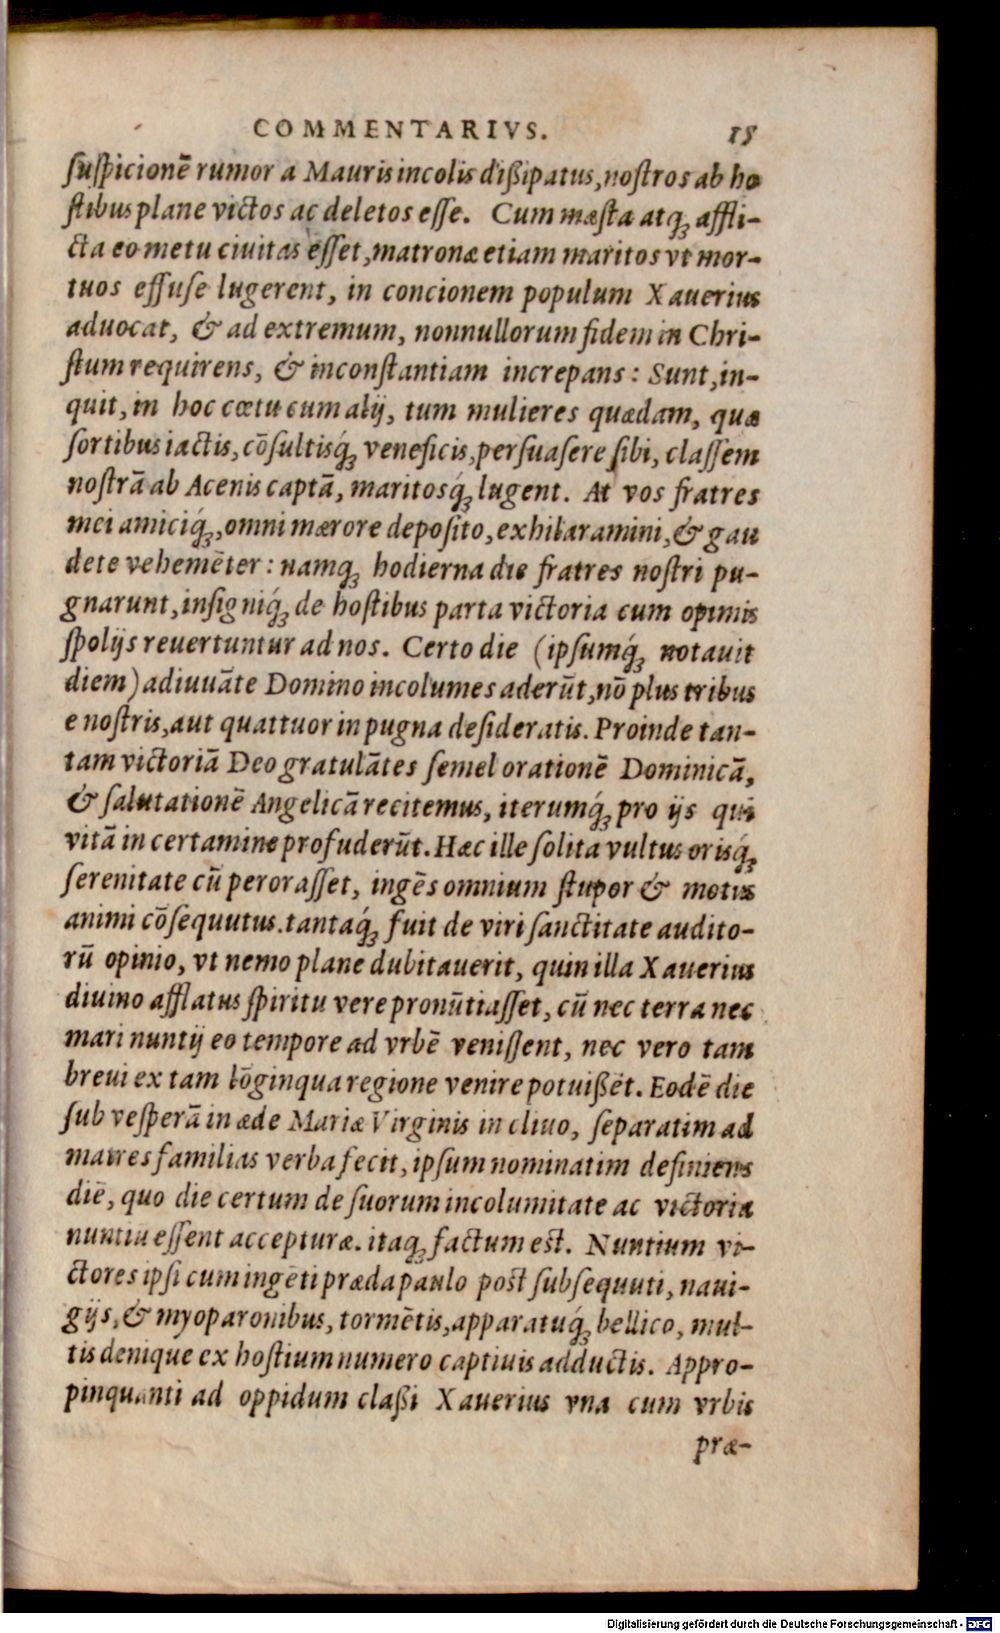 COMMENTARIVS. 15
ſuſpicionē rumor a Mauris incolis dißipatus, noſtros ab ho
ſtibus plane victos ac deletos eſſe. Cum mæſta atq; affli-
cta eo metu ciuitas eſſet, matronæ etiam maritos vt mor-
tuos effuſe lugerent, in concionem populum Xauerius
aduocat, & ad extremum, nonnullorum fidem in Chri-
ſtum requirens, & inconſtantiam increpans: Sunt, in-
quit, in hoc cœtu cum alij, tum mulieres quædam, quæ
ſortibus iactis, cōſultisq́; veneficis, perſuaſere ſibi, claſſem
noſtrā ab Acenis captā, maritosq́; lugent. At vos fratres
mei amiciq́;, omni mærore depoſito, exhilaramini, & gau
dete vehemēter: namq; hodierna die fratres noſtri pu-
gnarunt, inſigniq́; de hoſtibus parta victoria cum opimis
ſpolijs reuertuntur ad nos. Certo die (ipſumq́; notauit
diem) adiuuāte Domino incolumes aderūt, nō plus tribus
e noſtris, aut quattuor in pugna deſideratis. Proinde tan-
tam victoriā Deo gratulātes ſemel orationē Dominicā,
& ſalutationē Angelicā recitemus, iterumq́; pro ijs qui
vitā in certamine profuderūt. Hæc ille ſolita vultus orisq́;
ſerenitate cū peroraſſet, ingēs omnium ſtupor & motus
animi cōſequutus. tantaq́; fuit de viri ſanctitate audito-
rū opinio, vt nemo plane dubitauerit, quin illa Xauerius
diuino afflatus ſpiritu vere pronūtiaſſet, cū nec terra nec
mari nuntij eo tempore ad vrbē veniſſent, nec vero tam
breui ex tam lōginqua regione venire potuißēt. Eodē die
ſub veſperā in æde Mariæ Virginis in cliuo, ſeparatim ad
matres familias verba fecit, ipſum nominatim definiens
diē, quo die certum de ſuorum incolumitate ac victoria
nuntiū eſſent accepturæ. itaq; factum eſt. Nuntium vi-
ctores ipſi cum ingēti præda paulo poſt ſubſequuti, naui-
gijs, & myoparonibus, tormētis, apparatuq́; bellico, mul-
tis denique ex hoſtium numero captiuis adductis. Appro-
pinquanti ad oppidum claßi Xauerius vna cum vrbis
præ-
Digitalisierung gefördert durch die Deutsche Forschungsgemeinschaft - DFG